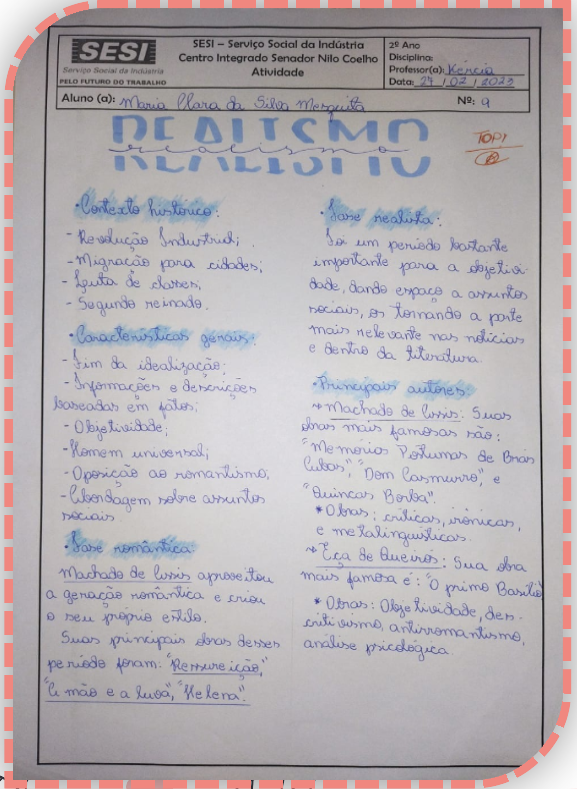 SESI
Serviço Social da Indústria
PELO FUTURO DO TRABALHO
SESI – Serviço Social da Indústria
Centro Integrado Senador Nilo Coelho
Atividade
2º Ano
Disciplina:
Professor(a): Kércia
Data: 27 / 02 / 2023
Aluno (a): Maria Clara da Silva Mesquita
Nº: 9
REALISMO
realismo
TOP!
• Contexto histórico:
- Revolução Industrial;
- Migração para cidades;
- Luta de classes;
- Segundo reinado.
• Características gerais:
- Fim da idealização;
- Informações e descrições
baseadas em fatos;
- Objetividade;
- Homem universal;
- Oposição ao romantismo;
- Abordagem sobre assuntos
sociais.
• Fase romântica:
Machado de Assis aproveitou
a geração romântica e criou
o seu próprio estilo.
Suas principais obras desses
período foram: "Ressureição,"
"A mão e a luva", "Helena".
• Fase realista:
Foi um período bastante
importante para a objetivi-
dade, dando espaço a assuntos
sociais, os tornando a parte
mais relevante nas notícias
e dentro da literatura.
• Principais autores:
* Machado de Assis: Suas
obras mais famosas são:
"Memórias Póstumas de Brás
Cubas", "Dom Casmurro", e
"Quincas Borba".
* Obras: críticas, irônicas,
e metalinguísticas.
* Eça de Queirós: Sua obra
mais famosa é: "O primo Basílio"
* Obras: Objetividade, des-
critivismo, antirromantismo,
análise psicológica.